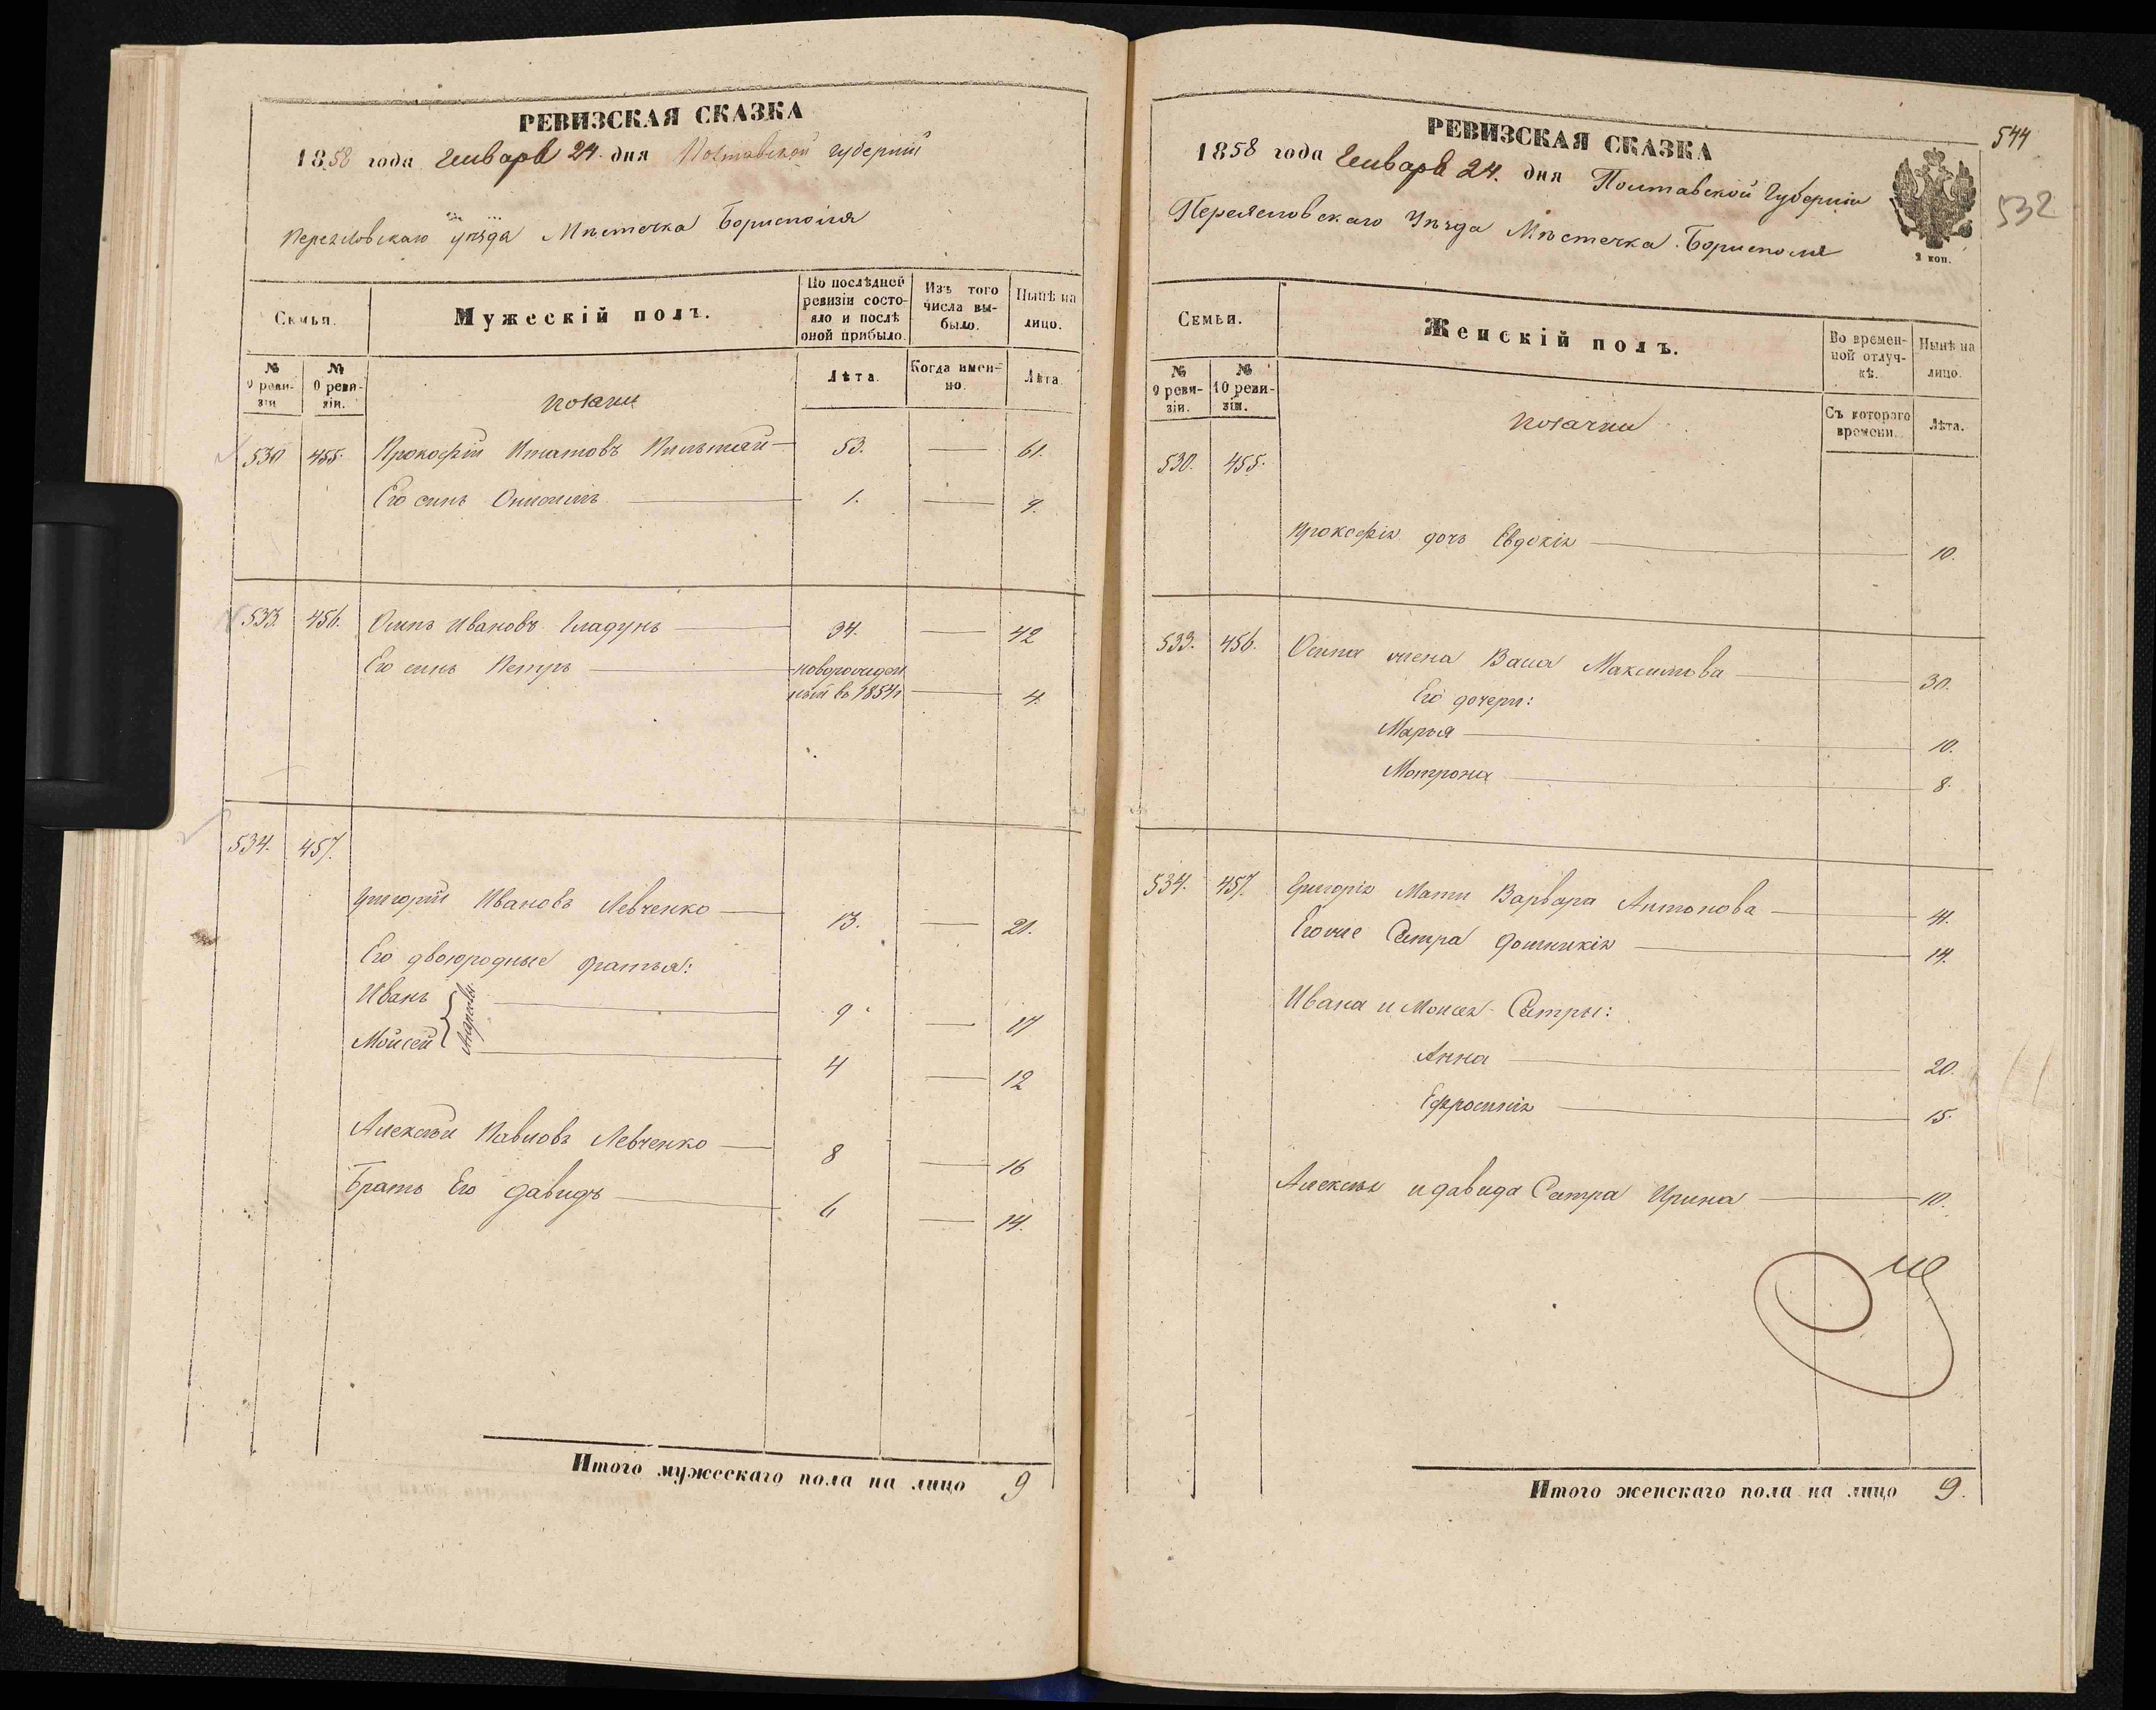 РЕВИЗСКАЯ СКАЗКА
1858 года Генваря 24. дня Полтавской губерніи
Переяславскаго уѣзда Мѣстечка Борисполя
Семьи.
Мужескій полъ.
По послѣдней ревизіи состояло и послѣ оной прибыло.
Изъ того числа выбыло.
Нынѣ на лицо.
№ 9 ревизіи
№ 0 ревизіи.
козаки
Лѣта.
Когда именно.
Лѣта.
530 455. Прокофій Игнатовъ 53. — 61.
Его сынъ Онисимъ 1. — 9.
533. 456. Осипъ Ивановъ Гладунъ 34. — 42
Его сынъ Петръ новорожденный въ 1854г — 4.
534. 457.
Григорій Ивановъ Левченко 13. — 21.
Его двоюродные братья:
Иванъ 9 — 17
Мойсей 4 — 12
Андреевы
Алексѣй Павловъ Левченко 8 — 16
Братъ Его Давидъ 6 — 14.
Итого мужескаго пола на лицо 9
РЕВИЗСКАЯ СКАЗКА
544
532
1858 года Генваря 24. дня Полтавской Губерніи
Переясловскаго Уѣзда Мѣстечка Борисполя
2 коп.
Семьи.
Женскій полъ.
Во временной отлучкѣ.
Нынѣ на лицо.
№ 9 ревизіи.
№ 10 ревизіи.
козачки
Съ котораго времени.
Лѣта.
530. 455.
Прокофія дочь Евдокія 10.
533. 456. Осипа жена Васа Максимова 30.
Его дочери:
Марья 10.
Мотрона 8.
534. 457. Григорія Мати Варвара Антонова 41.
Егоже Сестра Домникія 14.
Ивана и Моисея Сестры:
Анна 20.
Ефросинія 15.
Алексѣя и Давида Сестра Ирина 10.
Итого женскаго пола на лицо 9.